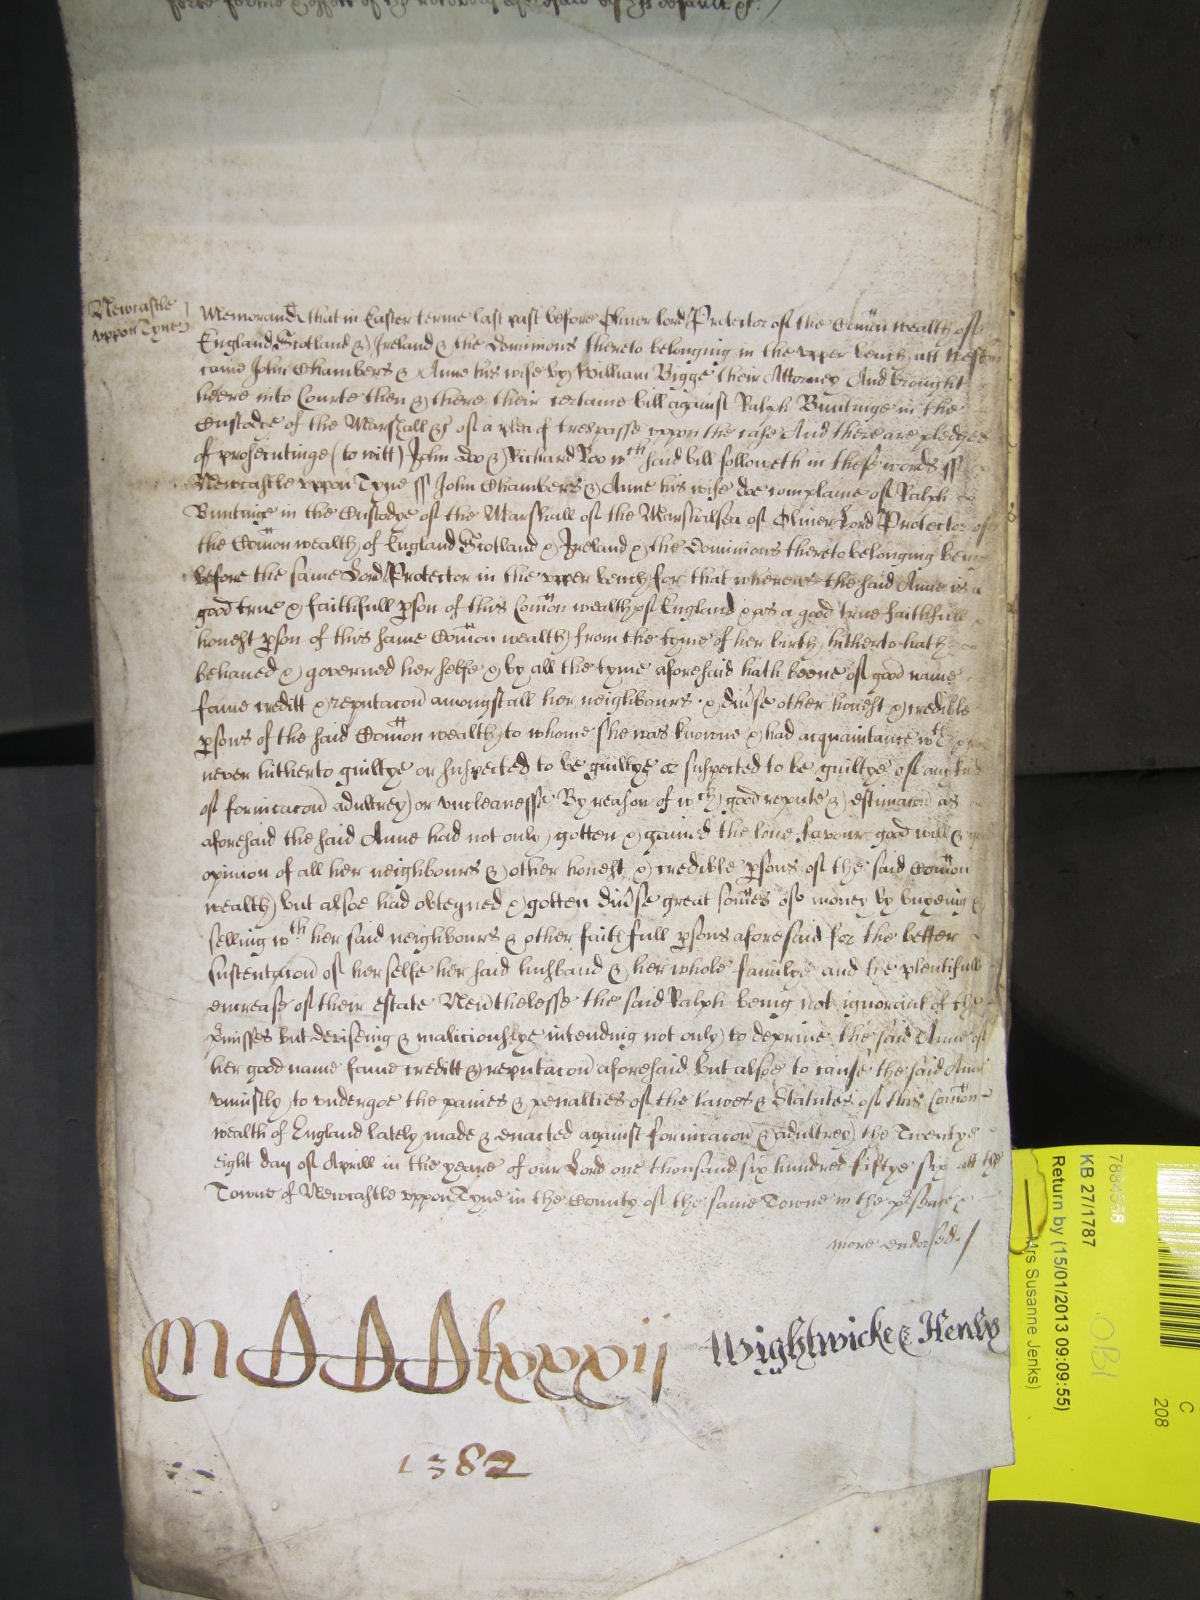 Newcastle
uppon Tyne
Memorand that in Easter terme last past before Oliver lord Protector of the Comon wealth of
England Scotland & Ireland & the dominions thereto belonging in the upper bench att
came John Chambers & Anne his wife by William Bigge their Attorney And brought
heere into Courte then & there their certaine bill against Ralph Buntinge in the
Custodye of the Marshall &c of a plea of trespasse uppon the case And there are pledges
of prosecutinge (to witt) John doo & Richard Roo wth said bill followeth in these words ss
Newcastle uppon Tyne ss John Chambers & Anne his wife doe complaine of Ralph
Buntinge in the Custodye of the Marshall of the Marshalsea of Oliver Lord Protector of
the Comon wealth of England Scotland & Ireland & the Dominions thereto belonging being
before the same Lord Protector in the upper bench for that whereas the said Anne is a
good true & faithfull pson of this Comon wealth of England & as a good true faithfull
honest pson of this same Comon wealth from the tyme of her birth hitherto hath
behaved & governed her selfe & by all the tyme aforesaid hath beene of good name
fame creditt & reputacon amongst all her neighbours & divse other honest & credible
psons of the said Comon wealth to whome she was knowne & had acquaintance wth
never hitherto guiltye or suspected to be guiltye or suspected to be guiltye of any
of fornicacon adultrey or uncleanesse By reason of wch good repute & estimacon as
aforesaid the said Anne had not only gotten & gained the love favour good will &
opinion of all her neighbours & other honest & credible psons of the said Comon
wealth but alsoe had obteyned & gotten divse great somes of money by buyeing &
selling wth her said neighbours & other faithfull psons aforesaid for the better
sustentacon of herselfe her said husband & her whole familye and the plentifull
encrease of their estate Nevthelesse the said Ralph being not ignorant of the
pmisses but deviseing & maliciouslye intending not only to deprive the said Anne of
her good name fame creditt & reputacon aforesaid but alsoe to cause the said Anne
uniustly to undergoe the paines & penalties of the lawes & Statutes of this Comon-
wealth of England lately made & enacted against fornicacon & adultrey the Twentye
eight day of Aprill in the yeare of our Lord one thousand six hundred fiftye six att the
Towne of Newcastle uppon Tyne in the County of the same Towne in the psence
more endorsed /
Wightwicke & Henly
1382
7884558
KB 27/1787
Return by (15/01/2013 09:09:55)
Mrs Susanne Jenks)
OBI
C
208